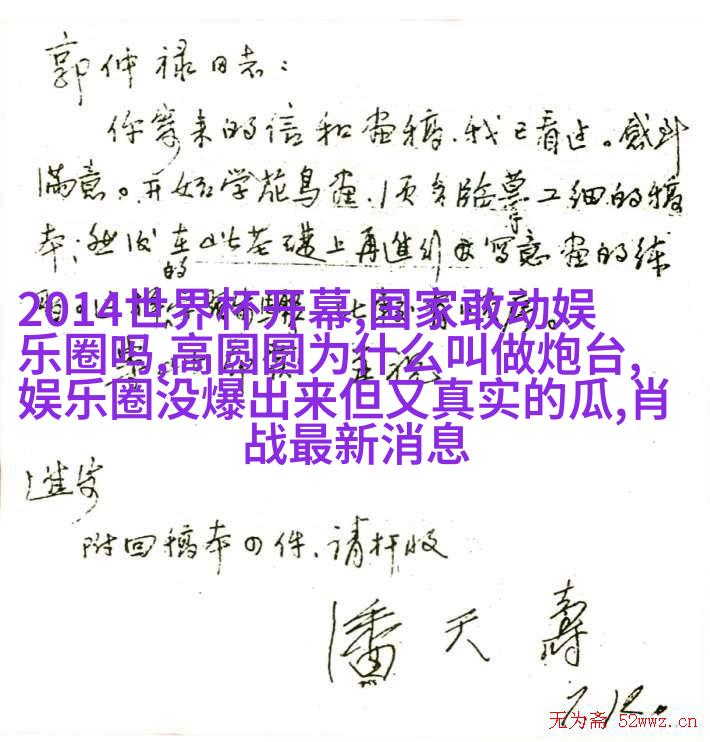 郭仲禄同志：
你寄来的信和画稿，我已看过。感到
满意。开始学花鸟画，须多临摹工细的稿
本；然后在此基础上再进行写意画的练
的
2014世界杯开幕,国家敢动娱
乐圈吗,高圆圆为什么叫做炮台,
娱乐圈没爆出来但又真实的瓜,肖
战最新消息
进安
附回稿本四件、请检收
潘天寿
7.12.
无为斋 52wwz.cn